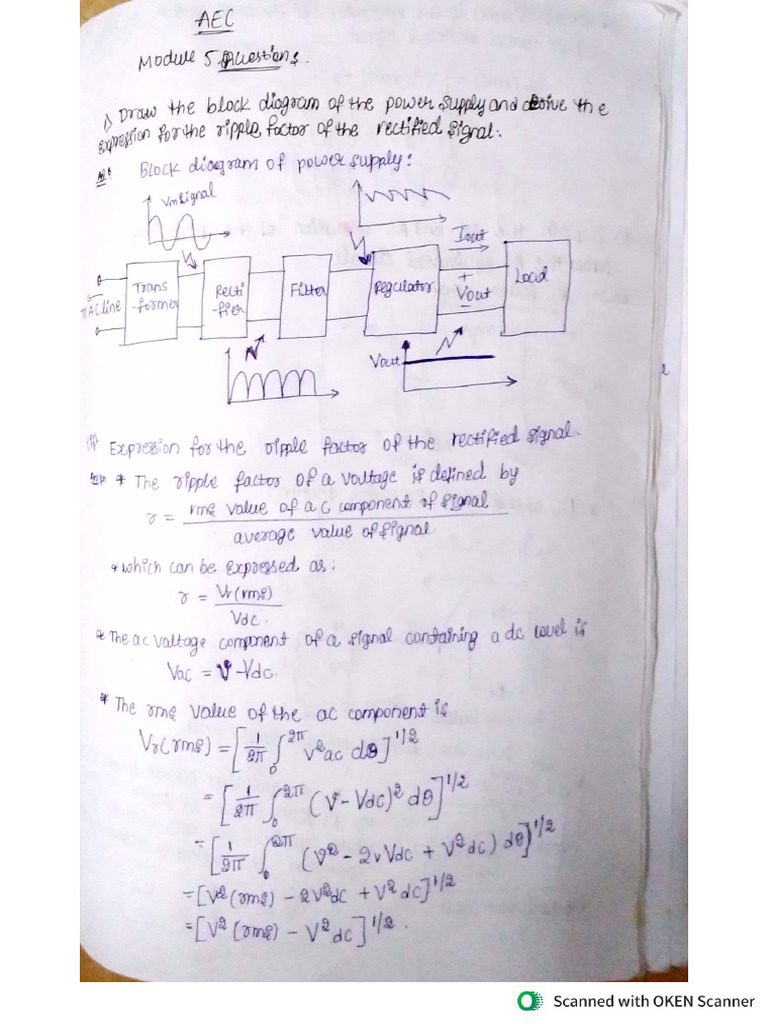 AEC
Module 5 Questions.
1) Draw the block diagram of the power supply and derive the
expression for the ripple factor of the rectified signal.
Block diagram of power supply:
Vm signal
Iout
AC line
Trans
-former
Recti
-fier
Filter
Regulator
+
Vout
-
Load
Vout
Expression for the ripple factor of the rectified signal.
* The ripple factor of a voltage is defined by
r = rms value of a c component of signal
average value of signal
* which can be expressed as:
r = Vr(rms)
Vdc.
* The ac voltage component of a signal containing a dc level is
Vac = V - Vdc.
* The rms value of the ac component is
Vr(rms) = [1/2π ∫₀^2π V²ac dθ]^1/2
= [1/2π ∫₀^2π (V - Vdc)² dθ]^1/2
= [1/2π ∫₀^2π (V² - 2vVdc + V²dc) dθ]^1/2
= [V²(rms) - 2V²dc + V²dc]^1/2
= [V²(rms) - V²dc]^1/2.
Scanned with OKEN Scanner